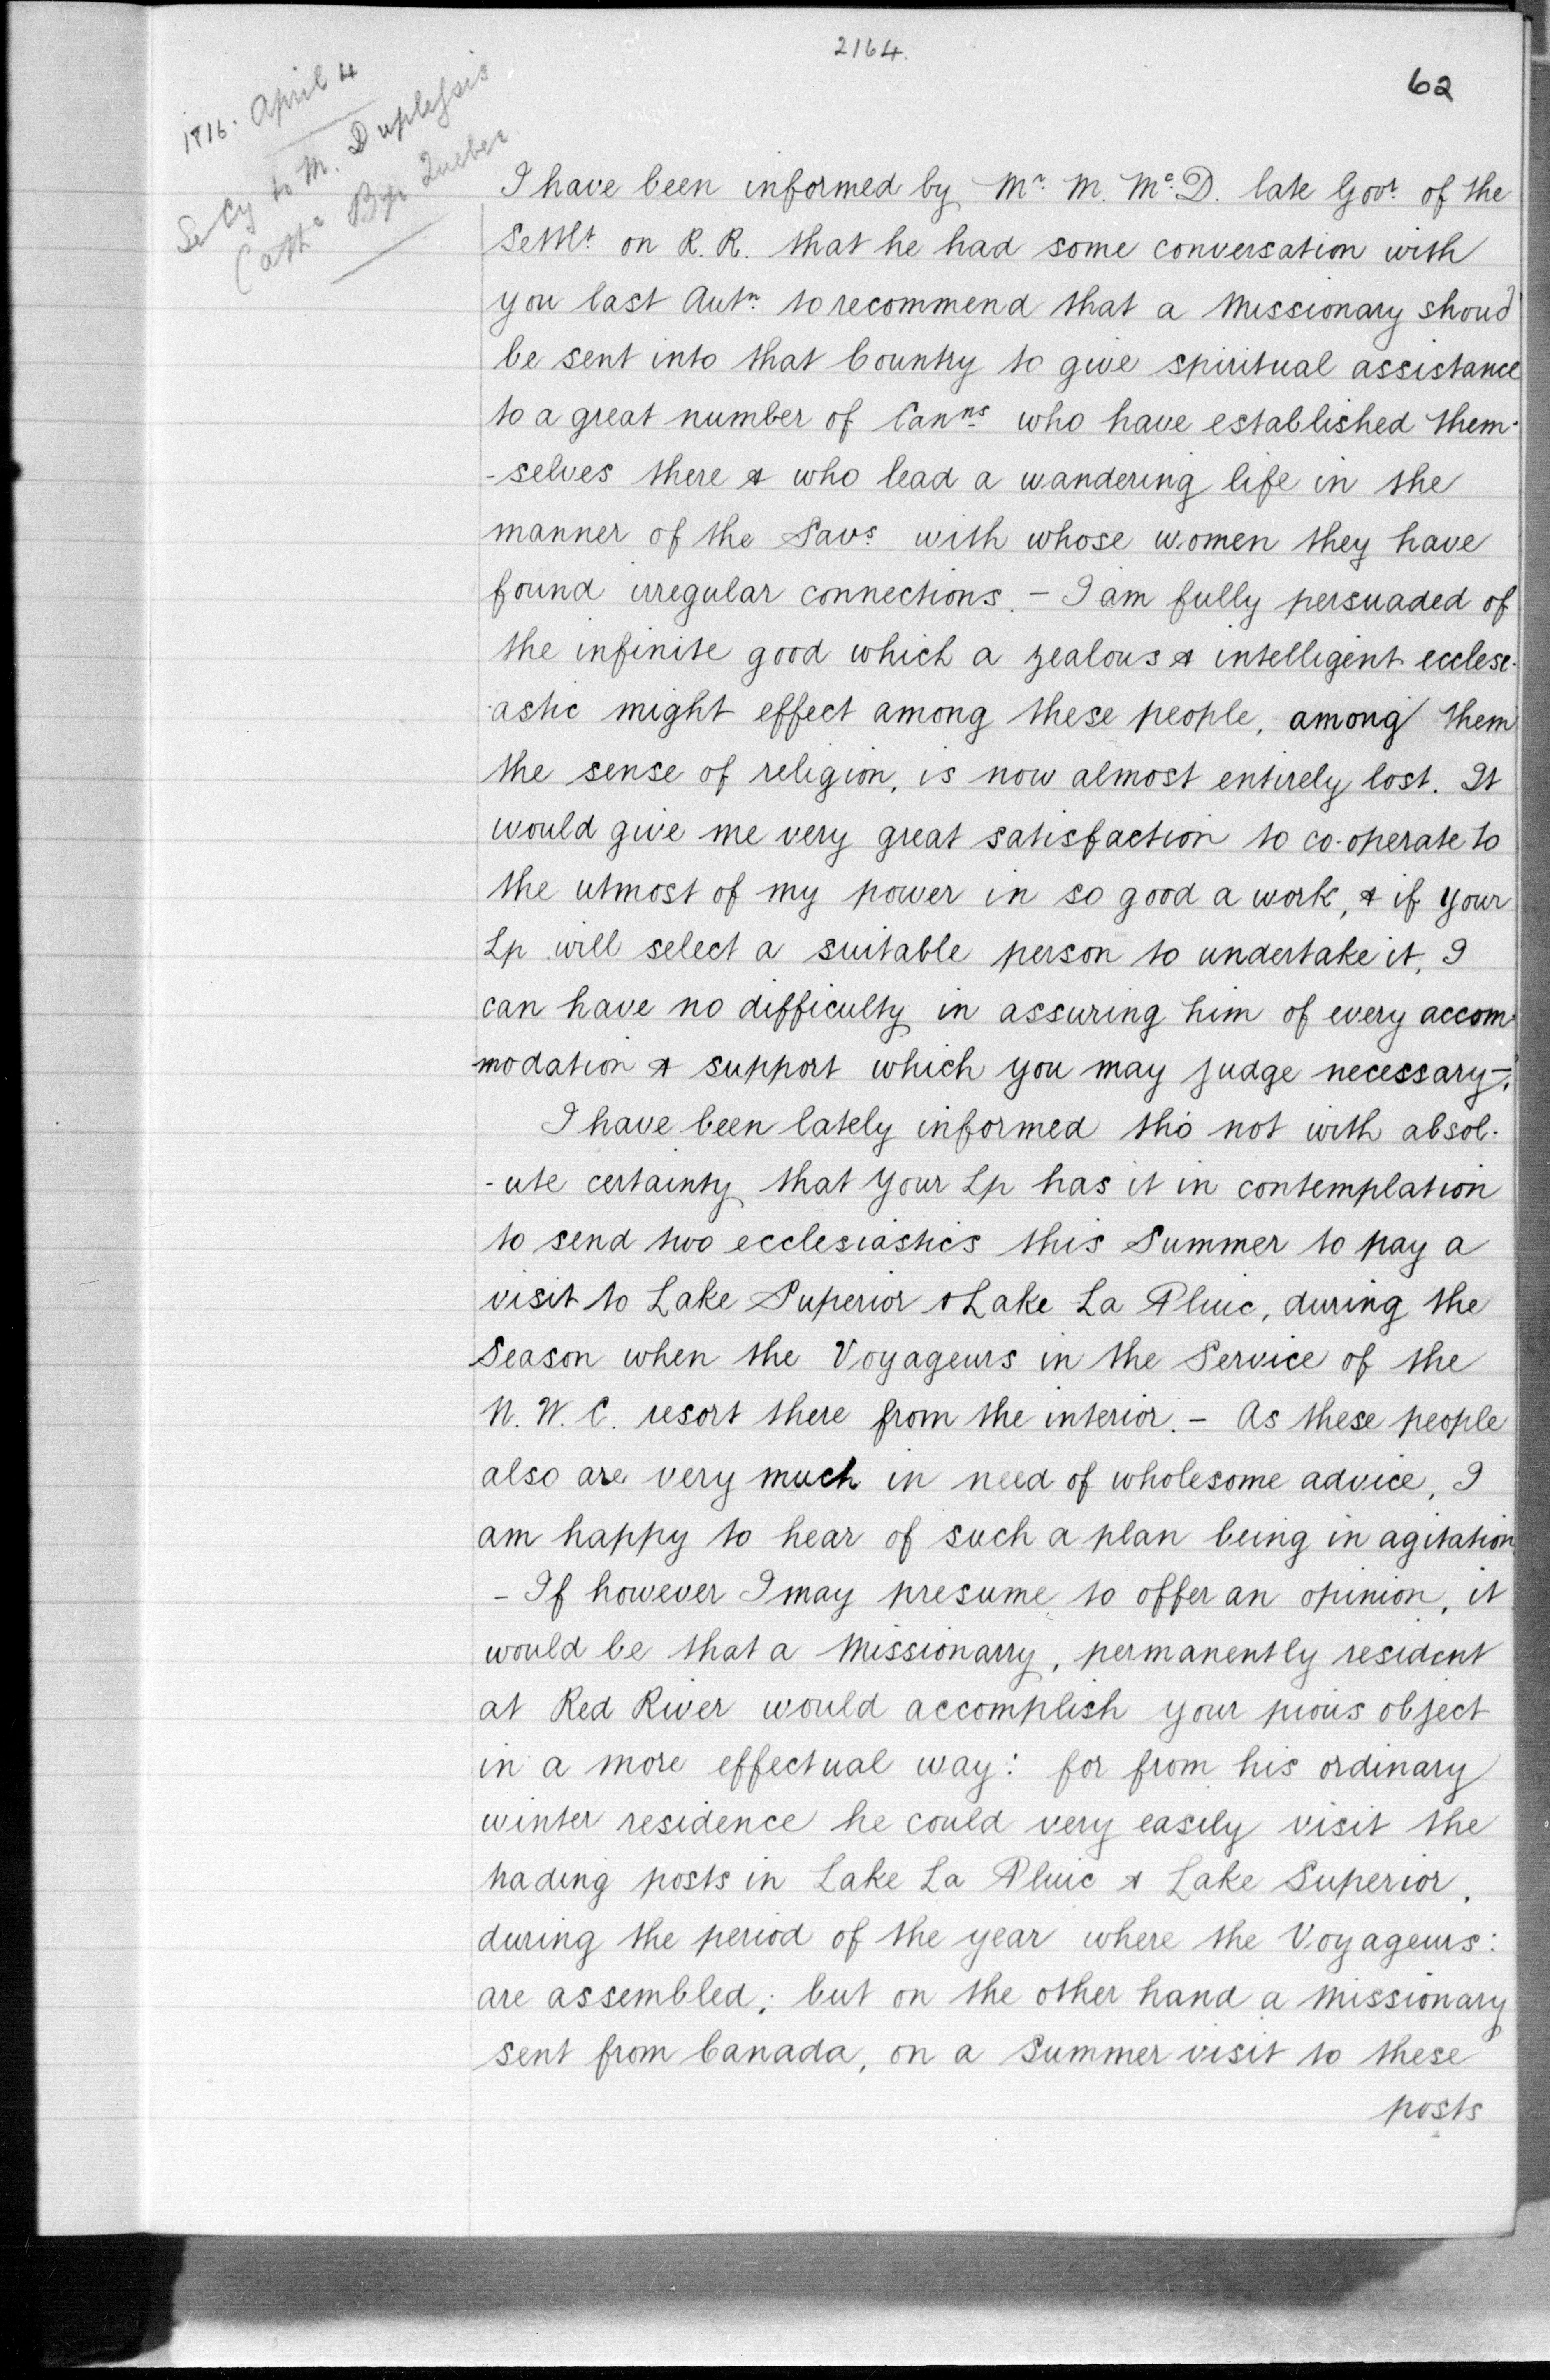 2164.
62
1816. April 4
Secy to M. Duplessis
Cathc Bp Quebec
I have been informed by Mr. M. Mc.D. late Govr. of the
Settlt. on R. R. that he had some conversation with
you last Autn. to recommend that a Missionary shoud
be sent into that Country to give spiritual assistance
to a great number of Canns who have established them-
-selves there & who lead a wandering life in the
manner of the Savs. with whose women they have
found irregular connections. - I am fully persuaded of
the infinite good which a zealous & intelligent ecclesi-
-astic might effect among these people, among them
the sense of religion, is now almost entirely lost. It
would give me very great satisfaction to co-operate to
the utmost of my power in so good a work, & if your
Lp will select a suitable person to undertake it, I
can have no difficulty in assuring him of every accom-
-modation & support which you may judge necessary-.
I have been lately informed tho' not with absol-
-ute certainty that your Lp has it in contemplation
to send two ecclesiastics this Summer to pay a
visit to Lake Superior & Lake La Pluie, during the
Season when the Voyageurs in the Service of the
N. W. C. resort there from the interior. - As these people
also are very much in need of wholesome advice, I
am happy to hear of such a plan being in agitation
- If however I may presume to offer an opinion, it
would be that a Missionarry, permanently resident
at Red River would accomplish your pious object
in a more effectual way: for from his ordinary
winter residence he could very easily visit the
trading posts in Lake La Pluie & Lake Superior,
during the period of the year where the Voyageurs:
are assembled; but on the other hand a Missionary
sent from Canada, on a Summer visit to these
posts